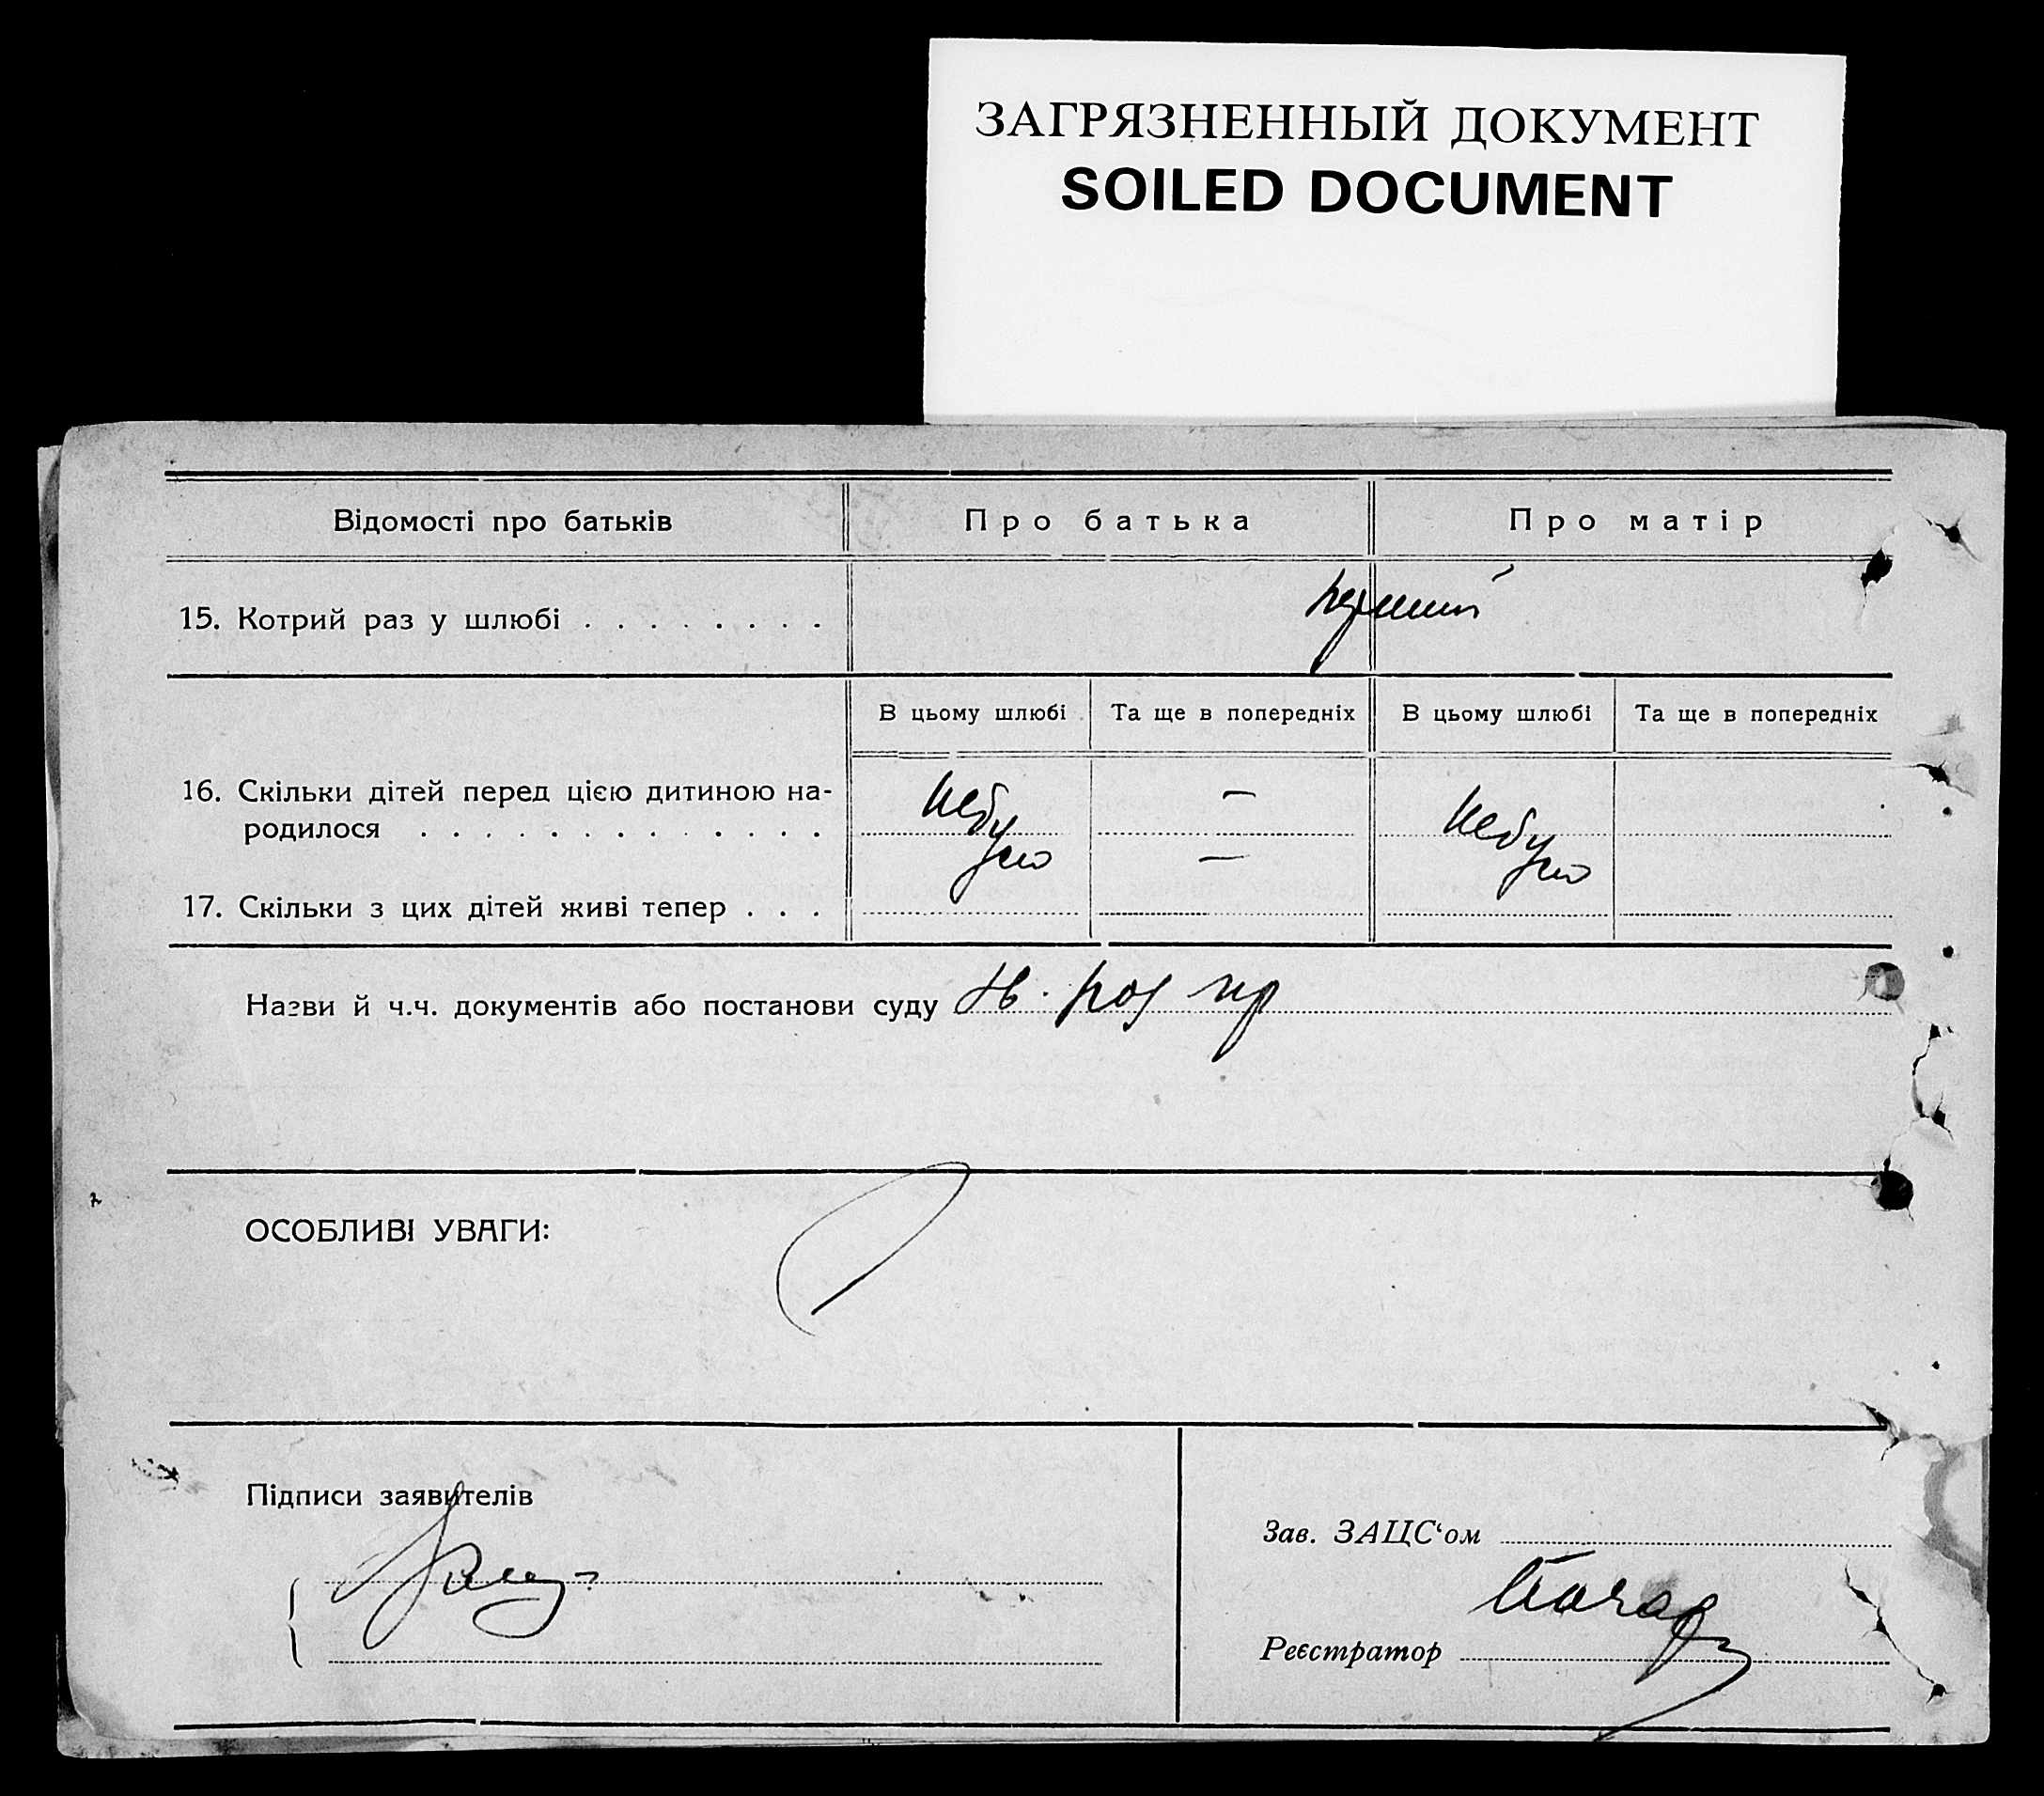 ЗАГРЯЗНЕННЫЙ ДОКУМЕНТ
SOILED DOCUMENT
Відомості про батьків Про батька Про матір
15. Котрий раз у шлюбі . . . . . . . . перший
В цьому шлюбі Та ще в попередніх В цьому шлюбі Та ще в попередніх
16. Скільки дітей перед цією дитиною на-
родилося . . . . . . . . . . . . . небуло — небуло
17. Скільки з цих дітей живі тепер . . . —
Назви й ч.ч. документів або постанови суду
ОСОБЛИВІ УВАГИ:
Підписи заявителів
Зав. ЗАЦС‘ом
Реєстратор